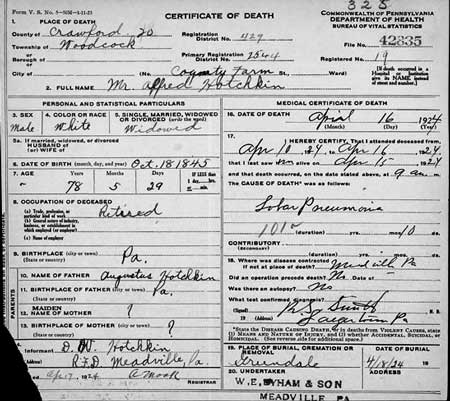 Form V. S. No. 5
CERTIFICATE OF DEATH
325
1. PLACE OF DEATH
County of Crawford
Township of Woodcock
or
Borough of
or
City of
Registration District No. 429
Primary Registration District No. 7544
COMMONWEALTH OF PENNSYLVANIA
DEPARTMENT OF HEALTH
BUREAU OF VITAL STATISTICS
File No. 42835
Registered No. 19
(If death occurred in a Hospital or Institution give its NAME
(No. County Farm St. Ward)
2. FULL NAME Mr. Alfred Hotchkin
PERSONAL AND STATISTICAL PARTICULARS
3. SEX
Male
4. COLOR OR RACE
White
5. SINGLE, MARRIED, WIDOWED or DIVORCED (write the word)
Widowed
5a. If married, widowed, or divorced
HUSBAND of
(or) WIFE of
6. DATE OF BIRTH (month, day, and year) Oct. 18 1845
7. AGE
78 5 29
IF LESS
8. OCCUPATION OF DECEASED
(a) Trade, profession, or particular kind of work
(b) General nature of industry, business, or establishment in which employed (or employer)
(c) Name of employer
Retired
9. BIRTHPLACE (city or town)
(State or country)
Pa.
PARENTS
10. NAME OF FATHER Augustus Hotchkin
11. BIRTHPLACE OF FATHER (city or town)
(State or country)
Pa.
12. MAIDEN NAME OF MOTHER ?
13. BIRTHPLACE OF MOTHER (city or town)
(State or country)
?
Informant D. W. Hotchkin
R.F.D Meadville, Pa.
1924
REGISTRAR
MEDICAL CERTIFICATE OF DEATH
16. DATE OF DEATH April 16 1924
(Month) (Day) (Year)
17.
I HEREBY CERTIFY, That I attended deceased from
Apr 10 1924, to Apr 16, 1924
that I last saw him alive on Apr 15, 1924
and that death occurred, on the date stated above, at 9 a.m.
The CAUSE OF DEATH* was as follows:
Lobar Pneumonia
101a
yrs. mos. 10 ds.
CONTRIBUTORY
(SECONDARY)
yrs. mos. ds.
18. Where was disease contracted
if not at place of death? Meadville Pa
Did an operation precede death? No
Was there an autopsy? No
What test confirmed diagnosis?
(Signed)
Saegertown Pa
*State the DISEASE CAUSING DEATH, or in deaths from VIOLENT CAUSES, state (1) MEANS AND NATURE OF INJURY, and (2) whether ACCIDENTAL, SUICIDAL, or HOMICIDAL.
19. PLACE OF BURIAL, CREMATION OR REMOVAL
Greendale
DATE OF BURIAL
4/18/24
20. UNDERTAKER
W. E. BYHAM & SON
MEADVILLE PA